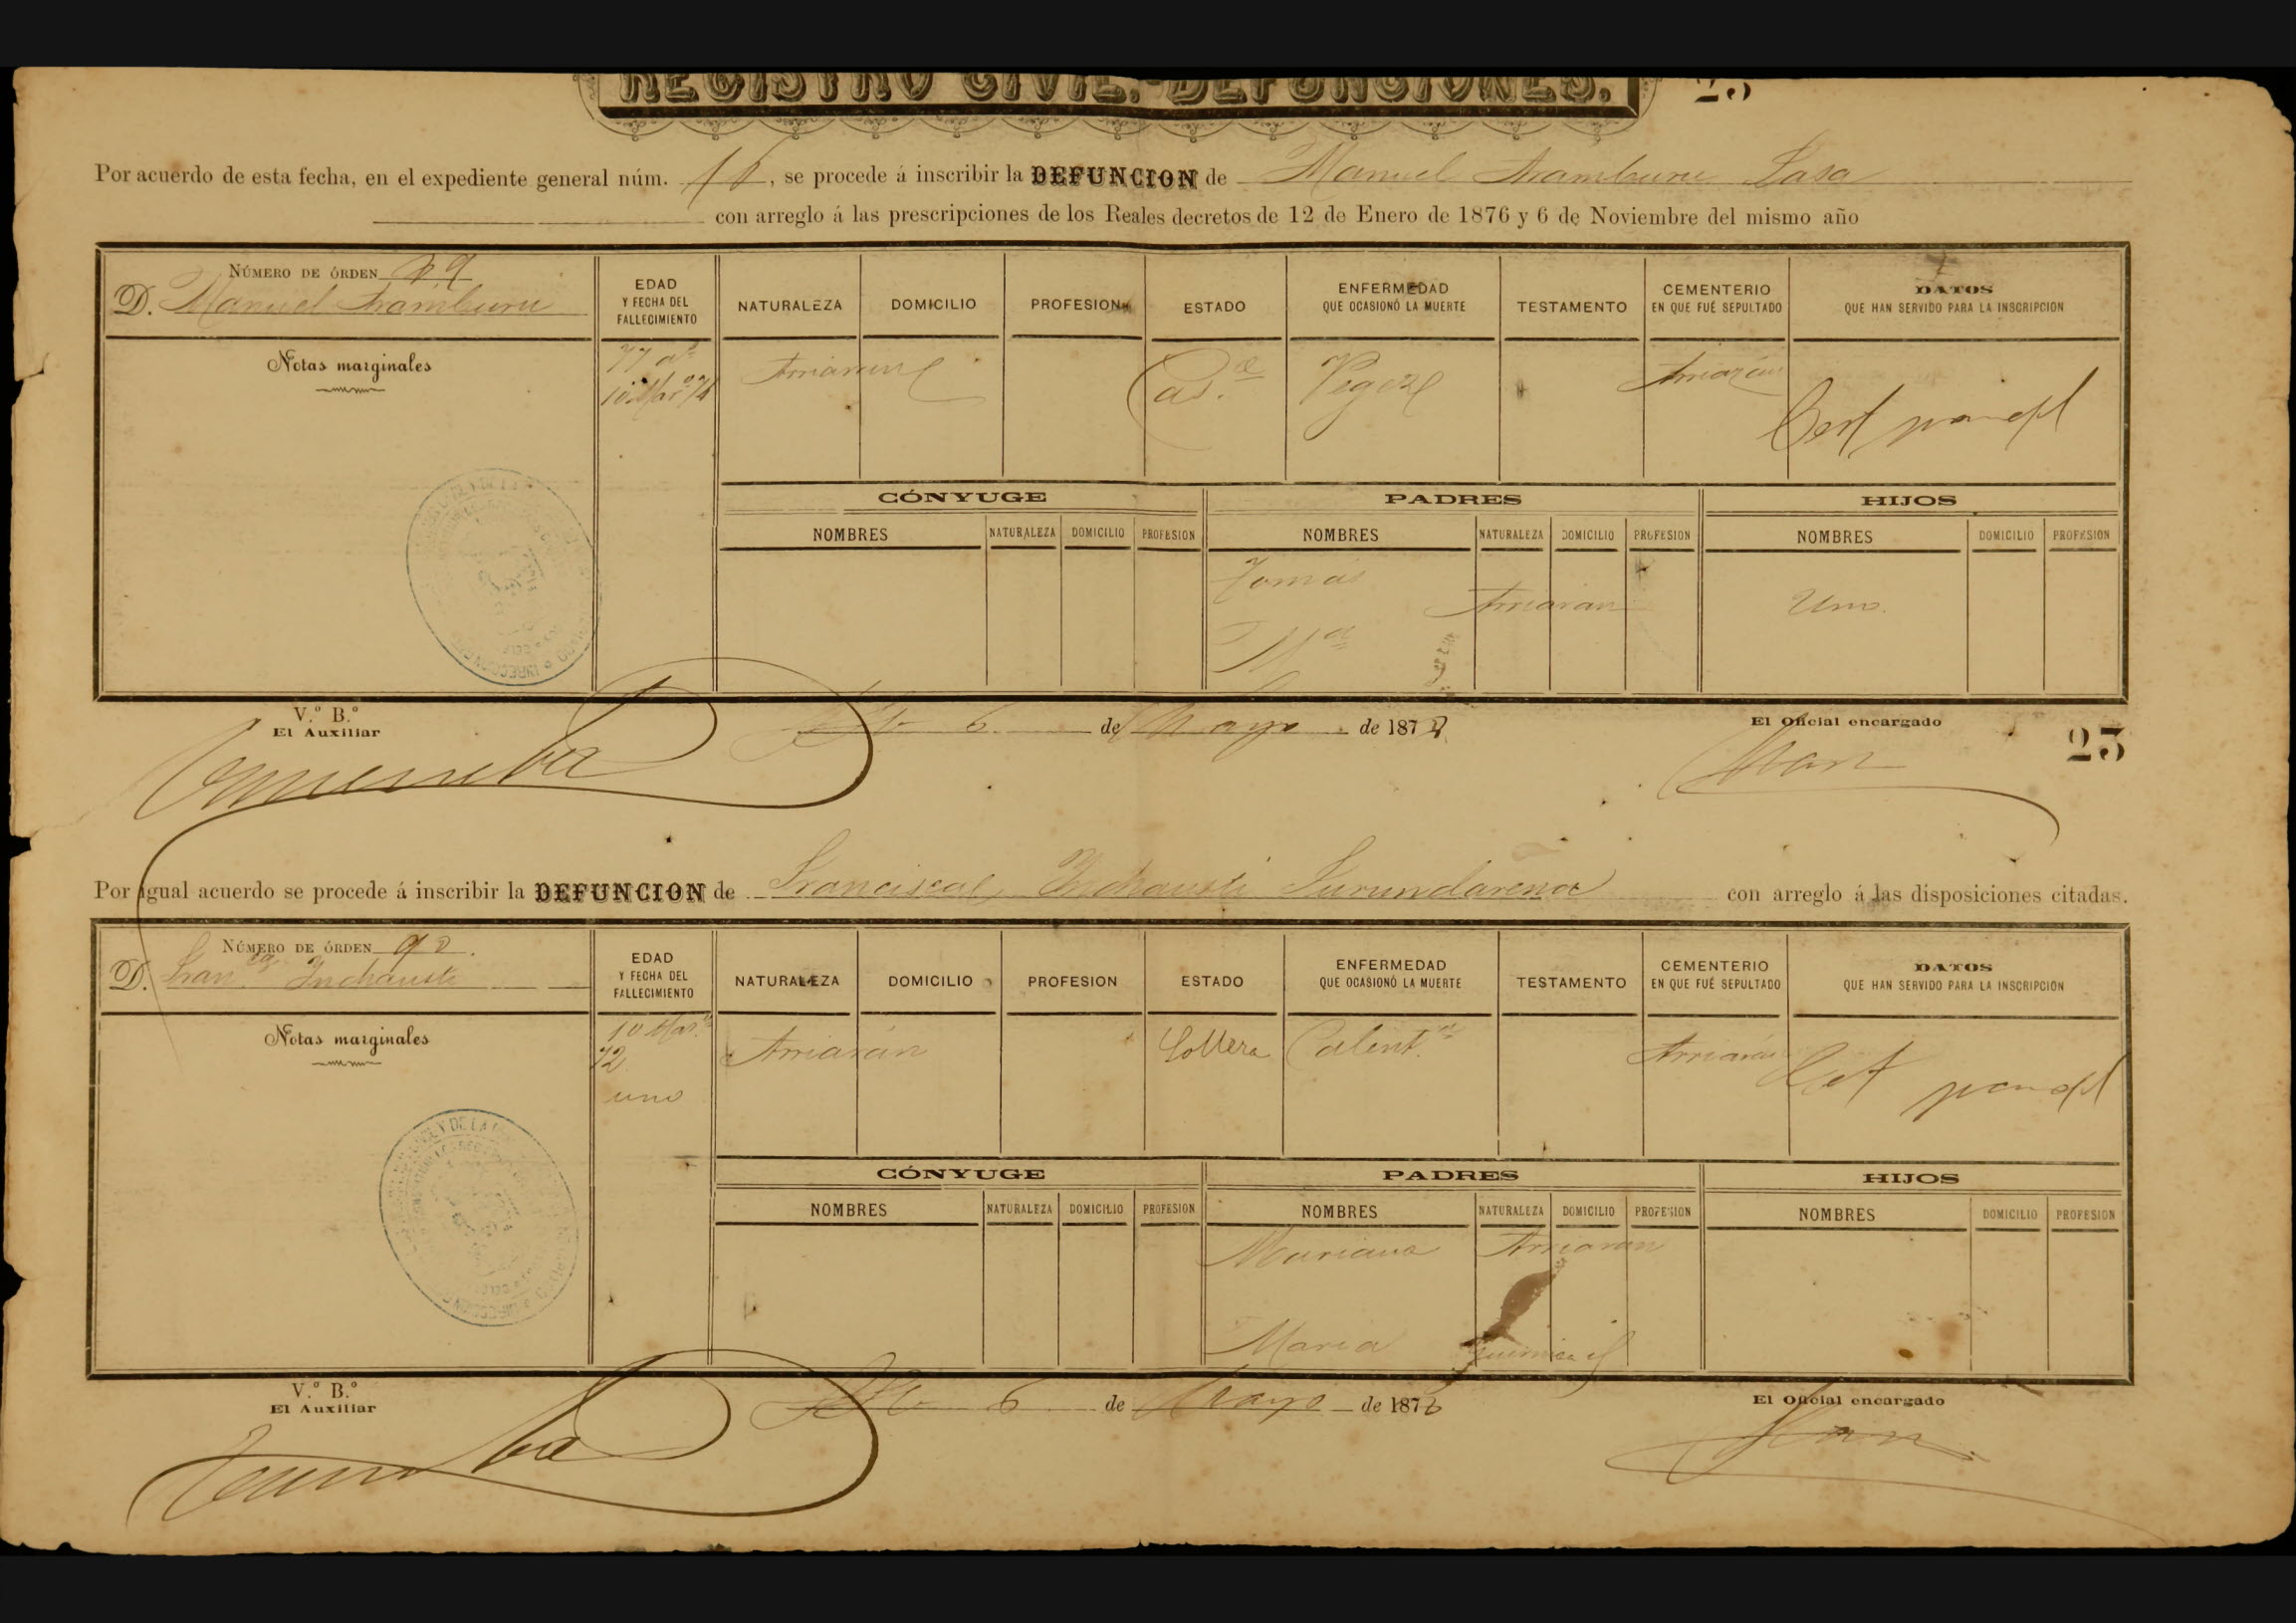 REGISTRO CIVIL.-DEFUNCIONES. 23
Por acuerdo de esta fecha, en el expediente general núm. , se procede á inscribir la DEFUNCION de Manuel Aramburu Lasa
con arreglo á las prescripciones de los Reales decretos de 12 de Enero de 1876 y 6 de Noviembre del mismo año
NÚMERO DE ÓRDEN
D. Manuel Aramburu
EDAD Y FECHA DEL FALLECIMIENTO
NATURALEZA DOMICILIO PROFESION ESTADO
ENFERMEDAD QUE OCASIONÓ LA MUERTE
TESTAMENTO
CEMENTERIO EN QUE FUÉ SEPULTADO
DATOS QUE HAN SERVIDO PARA LA INSCRIPCION
Notas marginales
77 a.s
Arriarán Cas.do Vegez Arriarán
CÓNYUGE PADRES HIJOS
NOMBRES NATURALEZA DOMICILIO PROFESION NOMBRES NATURALEZA DOMICILIO PROFESION NOMBRES DOMICILIO PROFESION
Tomás
Arriarán Uno.
M.a
V.° B.°
El Auxiliar
6 de Mayo de 187
El Oficial encargado
23
Por igual acuerdo se procede á inscribir la DEFUNCION de Francisca Inchausti Surundarena con arreglo á las disposiciones citadas.
NÚMERO DE ÓRDEN 90
D. Fran.ca Inchausti
EDAD Y FECHA DEL FALLECIMIENTO
NATURALEZA DOMICILIO PROFESION ESTADO
ENFERMEDAD QUE OCASIONÓ LA MUERTE
TESTAMENTO
CEMENTERIO EN QUE FUÉ SEPULTADO
DATOS QUE HAN SERVIDO PARA LA INSCRIPCION
Notas marginales
10 Mar.o
72
uno
Arriarán Soltera Calent.a Arriarán
CÓNYUGE PADRES HIJOS
NOMBRES NATURALEZA DOMICILIO PROFESION NOMBRES NATURALEZA DOMICILIO PROFESION NOMBRES DOMICILIO PROFESION
Mariano Arriarán
Maria
V.° B.°
El Auxiliar
6 de Mayo de 187
El Oficial encargado